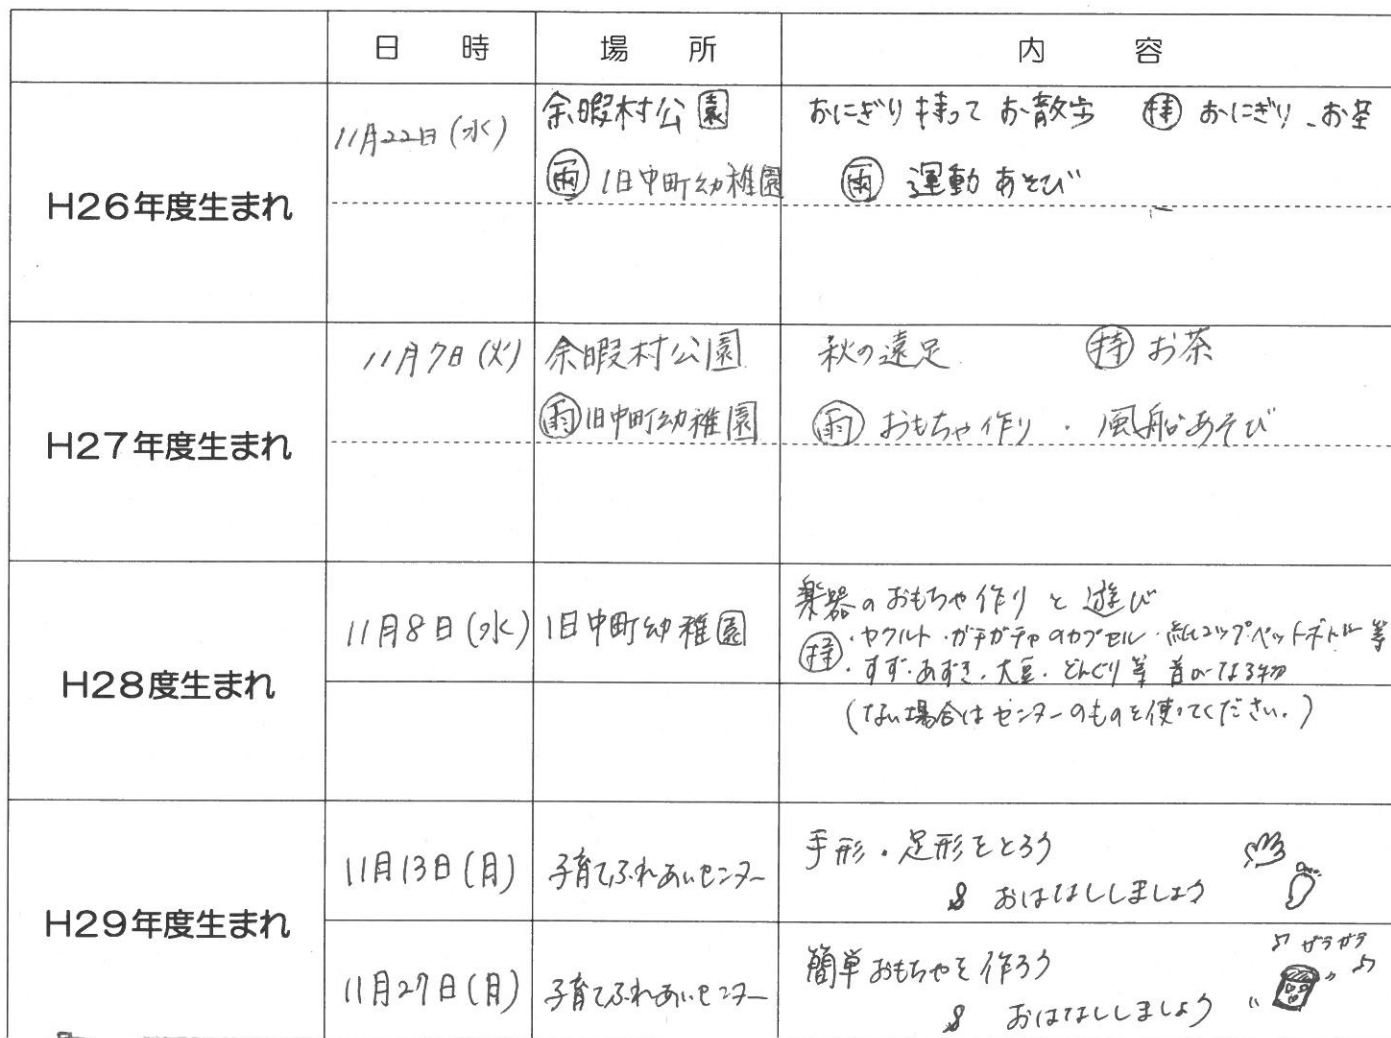 日 時 場 所 内 容
H26年度生まれ
11月22日(水) 余暇村公園 おにぎり持って お散歩 ㊕ おにぎり、お茶
㊌ 旧中町幼稚園 ㊌ 運動あそび
H27年度生まれ
11月7日(火) 余暇村公園 秋の遠足 持 お茶
雨 旧中町幼稚園 雨 おもちゃ作り ・ 風船あそび
H28度生まれ
11月8日(水) 旧中町幼稚園 楽器のおもちゃ作りと遊び
持 ・ヤクルト・ガチガチャのカプセル・紙コップ・ペットボトル等
・すず・あずき・大豆・どんぐり等 音がなる物
(ない場合はセンターのものを使ってください。)
H29年度生まれ
11月13日(月) 子育てふれあいセンター 手形・足形をとろう
& おはなししましょう
11月27日(月) 子育てふれあいセンター 簡単おもちゃを作ろう
& おはなししましょう
ガラガラ